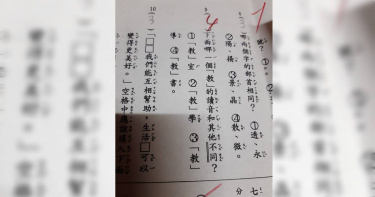 號？①。②
哪兩個字的部首相同？①透、永
②陽、揚。③景、晶 ④散、微。
4
下面哪一個「教」的讀音和其他不同？
①「教」室 ②「教」學 ③「教」
導 ④「教」書。
10
3
「□□我們能互相幫助，生活□可以
變得更美好。」空格中應該填入下面
七
分